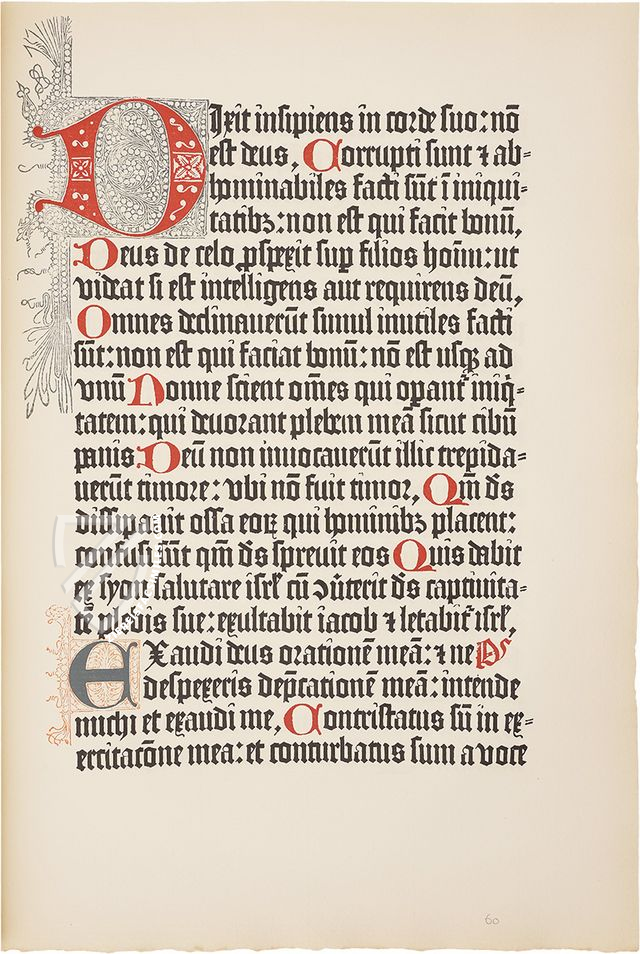 Dixit insipiens in corde suo: nō
est deus, Corrupti sunt ⁊ ab⸗
hominabiles facti sūt ī iniqui⸗
tatibꝫ: non est qui facit bonū,
Deus de celo ꝓspexit suꝑ filios hoīm: ut
videat si est intelligens aut requirens deū,
Omnes declinauerūt simul inutiles facti
sūt: non est qui faciat bonū: nō est usqꝫ ad
vnū Nonne scient om̄es qui oꝑant᷑ iniq̇⸗
tatem: qui deuorant plebem meā sicut cibū
panis Deū non inuocauerūt illic trepida⸗
uerūt timore: vbi nō fuit timor, Qm̄ ds̄
dissipauit ossa eoꝝ qui hominibꝫ placent:
confusi sūt qm̄ ds̄ spreuit eos Quis dabit
ex syon salutare isrl̄ cū ꝯu̾terit ds̄ captiuita⸗
tē plebis sue: exultabit iacob ⁊ letabit᷑ isrl̄,
EXaudi deus orationē meā: ⁊ ne Ps̾
despexeris dep̄cationē meā: intende
michi et exaudi me, Contristatus sū in ex⸗
ercitac̄one mea: et conturbatus sum a voce
60